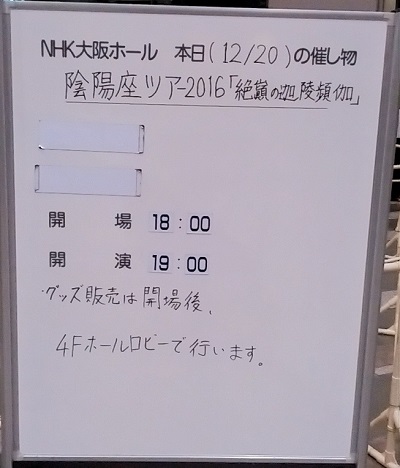 NHK大阪ホール 本日(12/20)の催し物
陰陽座ツアー2016「絶巓の迦陵頻伽」
開場 18:00
開演 19:00
グッズ販売は開場後、
4Fホールロビーで行います。